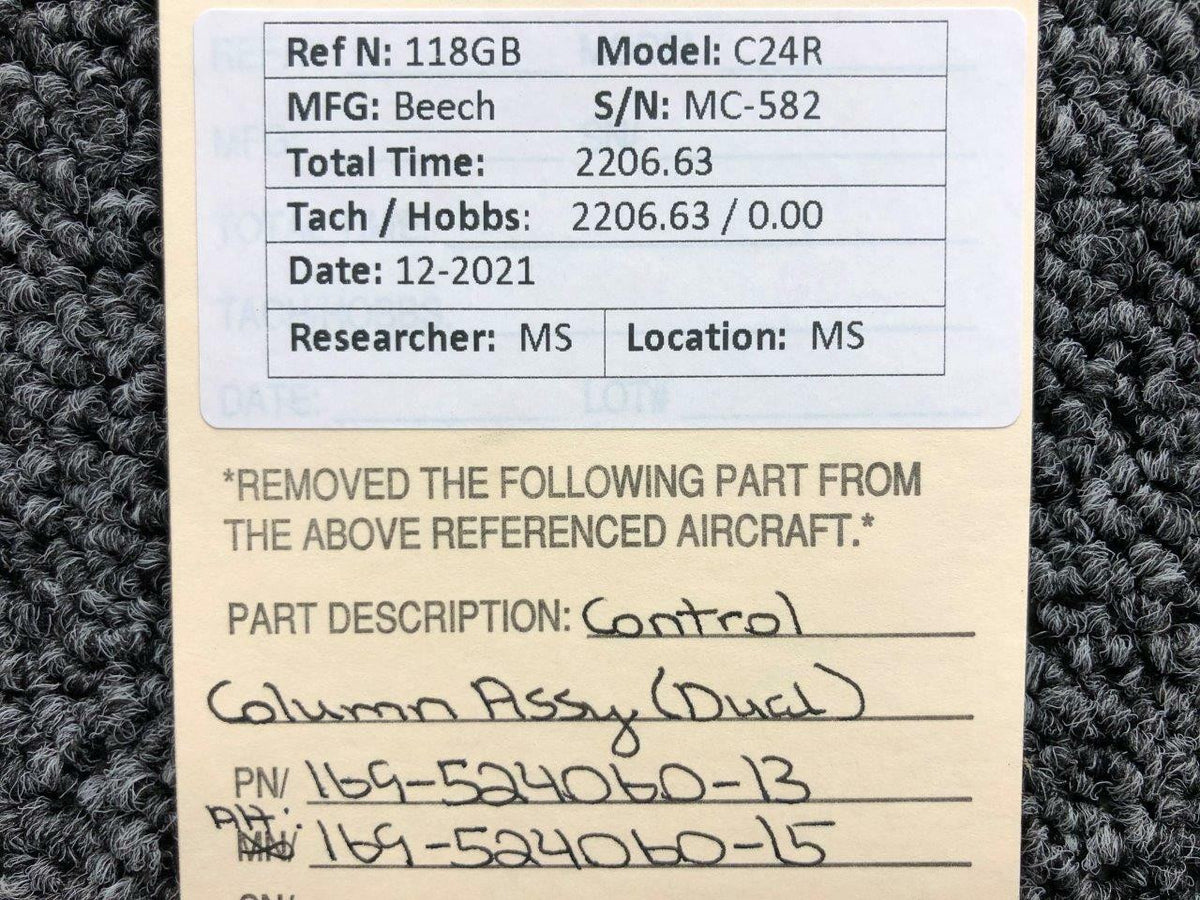 Ref N: 118GB Model: C24R
MFG: Beech S/N: MC-582
Total Time: 2206.63
Tach / Hobbs: 2206.63 / 0.00
Date: 12-2021
Researcher: MS Location: MS
DATE: LOT#
*REMOVED THE FOLLOWING PART FROM
THE ABOVE REFERENCED AIRCRAFT.*
PART DESCRIPTION: Control
Column Assy (Dual)
PN/ 169-524060-13
Alt:
MN/ 169-524060-15